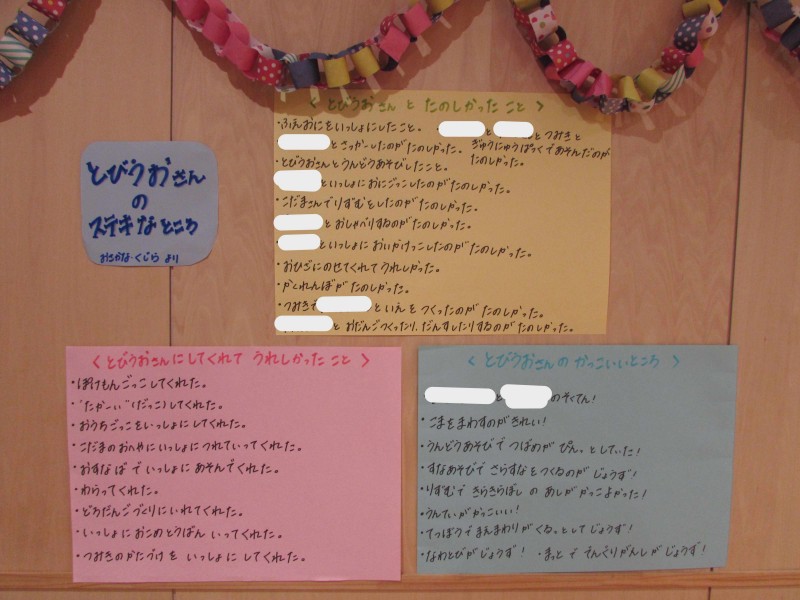 とびうおさん
の
ステキなところ
おさかな・くじら より
＜とびうおさん と たのしかった こと＞
・ふえおにをいっしょにしたこと。
とさっかーしたのがたのしかった。
・とびうおさんとうんどうあそびしたこと。
といっしょにおにごっこしたのがたのしかった。
・こだまさんでりずむをしたのがたのしかった。
とおしゃべりするのがたのしかった。
といっしょに おいかけっこしたのがたのしかった。
・おひざにのせてくれてうれしかった。
・かくれんぼがたのしかった。
・つみきで といえをつくったのがたのしかった。
と おだんごつくったり、だんすしたりするのがたのしかった。
・ と とつみきと
ぎゅうにゅうぱっくであそんだのが
たのしかった。
＜とびうおさんにしてくれて うれしかった こと＞
・ぽけもんごっこしてくれた。
・"たかーい"(だっこ)してくれた。
・おうちごっこをいっしょにしてくれた。
・こだまのおへやにいっしょにつれていってくれた。
・おすなばでいっしょにあそんでくれた。
・わらってくれた。
・どろだんごづくりにいれてくれた。
・いっしょにおこめとうばん いってくれた。
・つみきのかたづけを いっしょに してくれた。
＜とびうおさんの かっこいいところ＞
と のそくてん!
・こまをまわすのがきれい!
・うんどうあそびで つばめが ぴんっとしていた!
・すなあそびで さらすなをつくるのが じょうず!
・りずむで きらきらぼし の あしが かっこよかった!
・うんていがかっこいい!
・てつぼうでまえまわりがくるっとして じょうず!
・なわとびがじょうず! ・まっとで でんぐりがえしがじょうず!